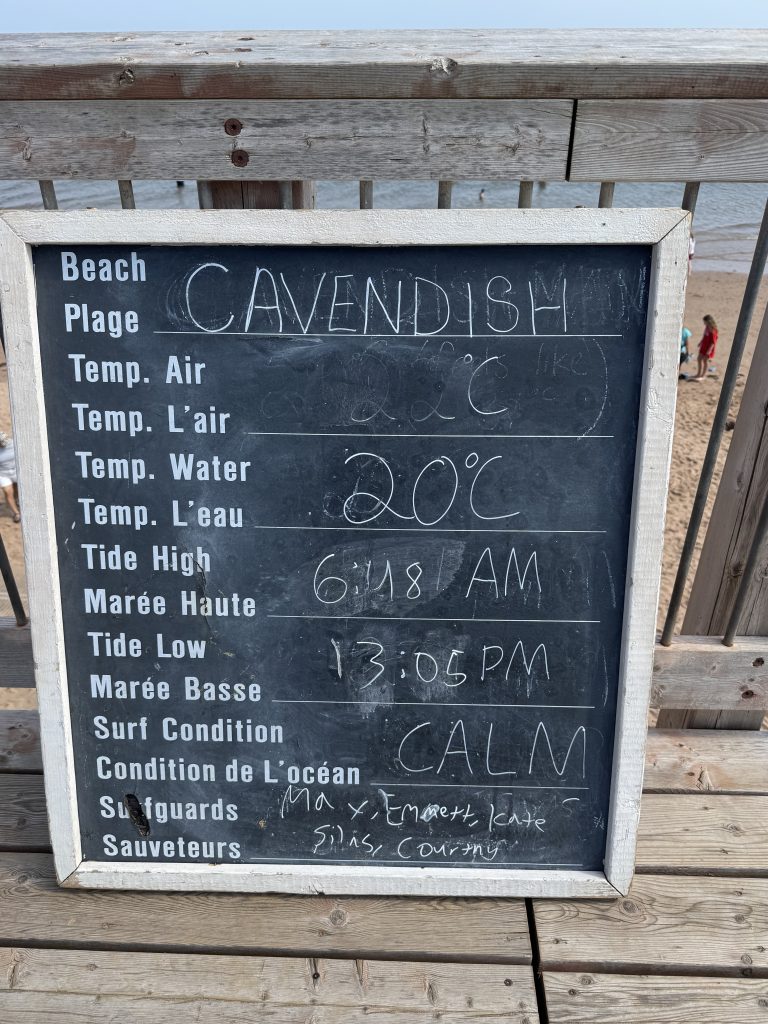 Beach
Plage CAVENDISH
Temp. Air
Temp. L'air 22°C
Temp. Water
Temp. L'eau 20°C
Tide High
Marée Haute 6:48 AM
Tide Low
Marée Basse 13:05 PM
Surf Condition
Condition de L'océan CALM
Surfguards Max, Emmett, Kate
Sauveteurs Silas, Courtny